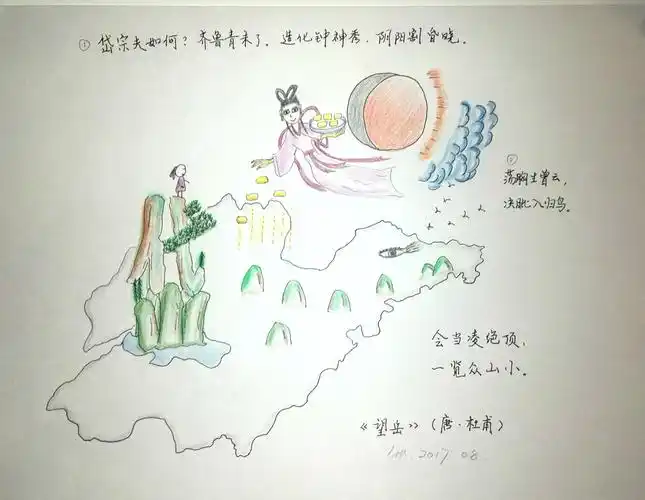 ① 岱宗夫如何？齐鲁青未了。造化钟神秀，阴阳割昏晓。
②
荡胸生曾云，
决眦入归鸟。
会当凌绝顶，
一览众山小。
《望岳》（唐·杜甫）
2017.08.